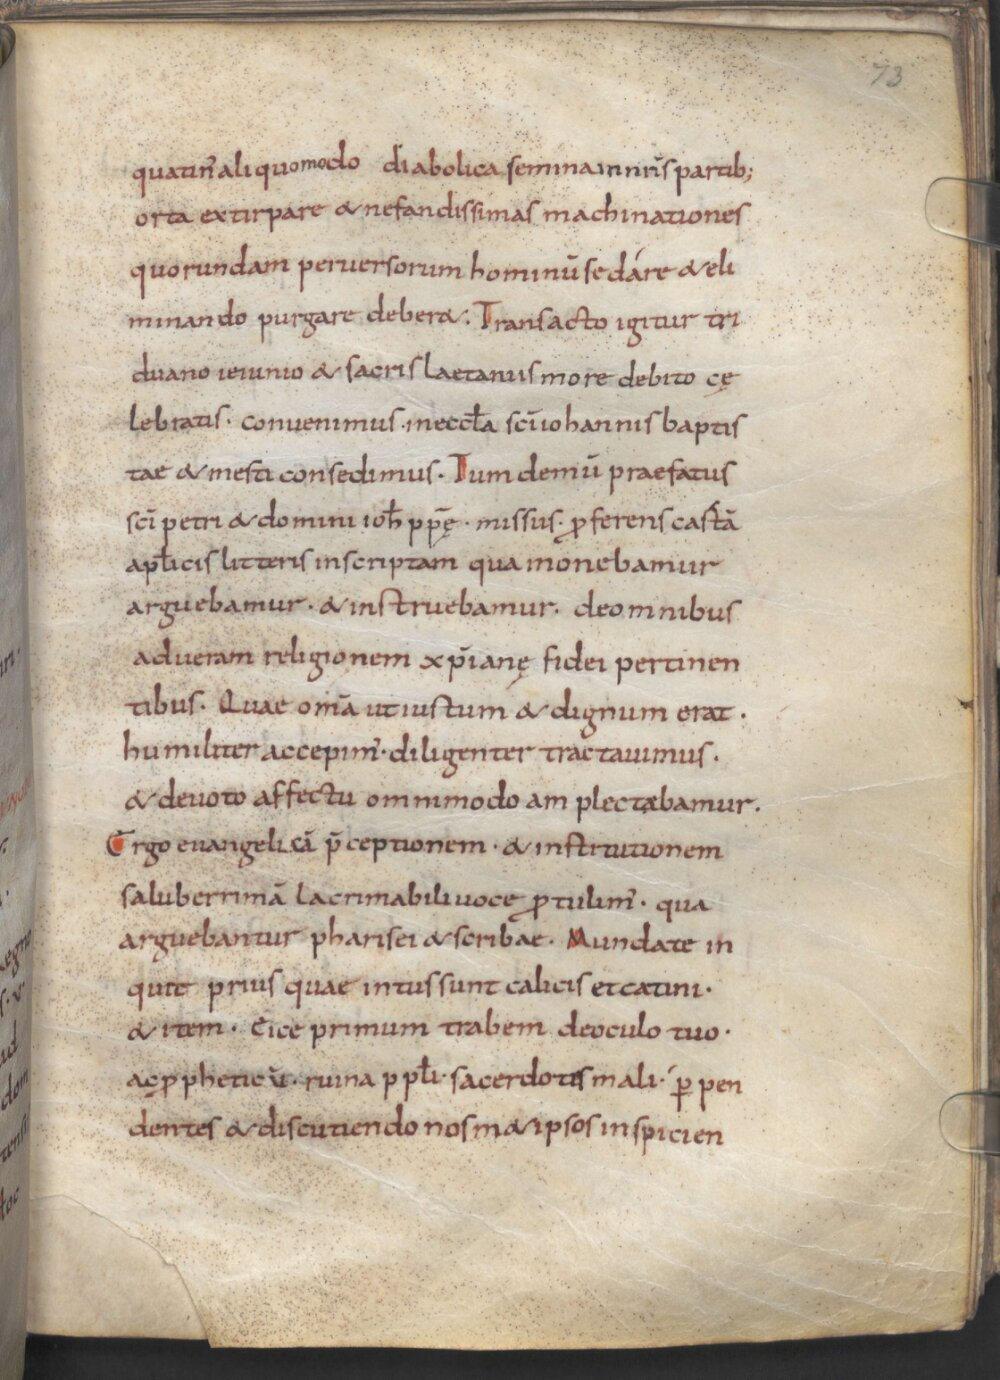 73
quatin̄ aliquomodo diabolica semina in nr̄is partib;
orta extirpare & nefandissimas machinationes
quorundam perversorum hominū sedáre & eli
minando purgare deber&. Transacto igitur tri
duano ieiunio & sacris laetaniis more debito cę
lebratis. convenimus. in eccl̄a sc̄i iohannis baptis
tae & mesti consedimus. Tum demū praefatus
sc̄i petri & domini ioh̄ pp̄ę. missus. ꝓferens castā
apl̄icis litteris inscriptam qua monebamur
arguebamur. & instruebamur. de omnibus
ad ueram religionem xp̄ianę fidei pertinen
tibus. Quae om̄ia ut iustum & dignum erat.
humiliter accepim̄. diligenter tractauimus.
& deuoto affectu ommmodo amplectabamur.
Ergo euangelicā p̄ceptionem. & institutionem
saluberrimā lacrimabili uoce ꝓtulim̄. qua
arguebantur pharisei & scribae. Mundate in
quit prius quae intus sunt calicis et catini.
& item. Eice primum trabem de oculo tuo.
ac ꝓpheticū. ruina ppl̄i. sacerdotes mali. ꝑpen
dentes & discutiendo nosm&ipsos inspicien